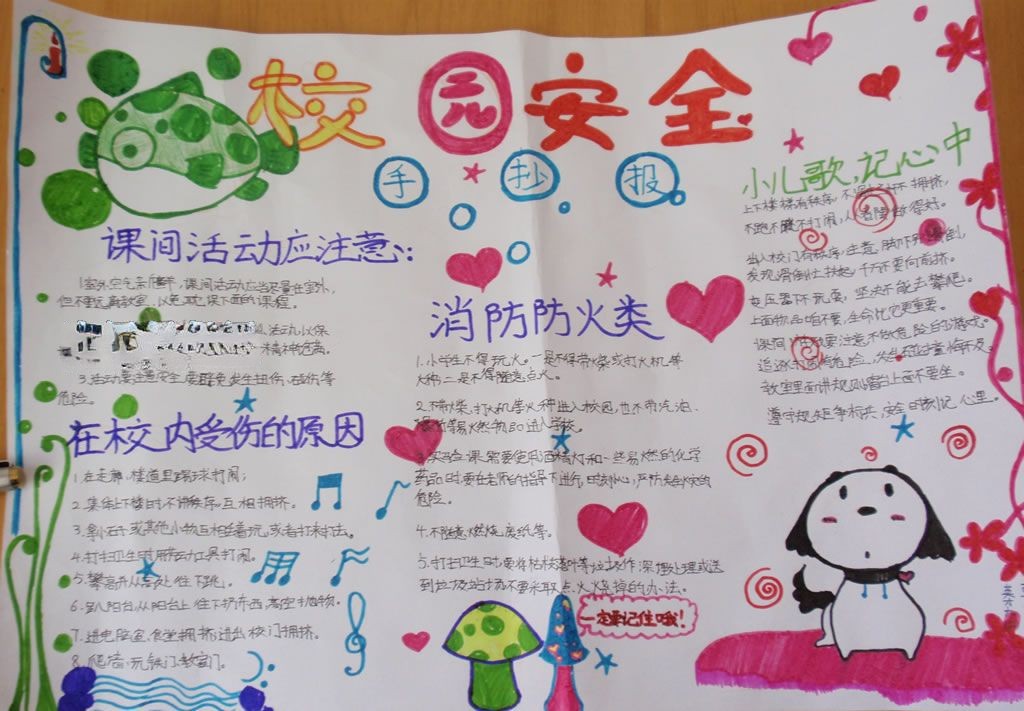 校园安全
手抄报
课间活动应注意:
1.室外空气新鲜,课间活动应当尽量在室外,
但不要远离教室,以免耽误下面的课程。
活动,以保
精神饱满。
3.活动要注意安全,要避免发生扭伤、碰伤等
危险。
在校内受伤的原因
1.在走廊、楼道里踢球打闹;
2.集体上下楼时,不讲秩序,互相拥挤。
3.拿小石子或其他小物互相掷着玩,或者打来打去。
4.打扫卫生时用劳动工具打闹。
5.攀高并从高处往下跳。
6.趴阳台,从阳台上往下扔东西,高空抛物。
7.进电脑室、食堂拥挤,进出校门拥挤。
8.爬墙、玩铁门、教室门。
消防防火类
1.小学生不得玩火。一是不得带火柴或打火机等
火种,二是不得随意点火。
2.不带火柴、打火机等火种进入校园,也不带汽油、
等易燃物品进入学校。
实验课需要使用酒精灯和一些易燃的化学
药品时,要在老师的指导下进行,时刻小心,严防发生火灾的
危险。
4.不随意燃烧废纸等。
5.打扫卫生时,要将枯枝落叶等垃圾作深埋处理或送
到垃圾站场,不要采取点火烧掉的办法。
一定要记住哦!
小儿歌,记心中
上下楼梯有秩序,不拥挤,
不跑不跳不打闹,
出入校门有秩序,注意脚下别滑倒,
发现滑倒快扶起,千万不要向前挤。
变压器下不玩耍,坚决不能去攀爬。
上面物品咱不要,生命比它更重要。
课间活动要注意,不做危险的游戏。
教室里面讲规则,窗台上面不要坐。
遵守规矩争标兵,安全时刻记心里。